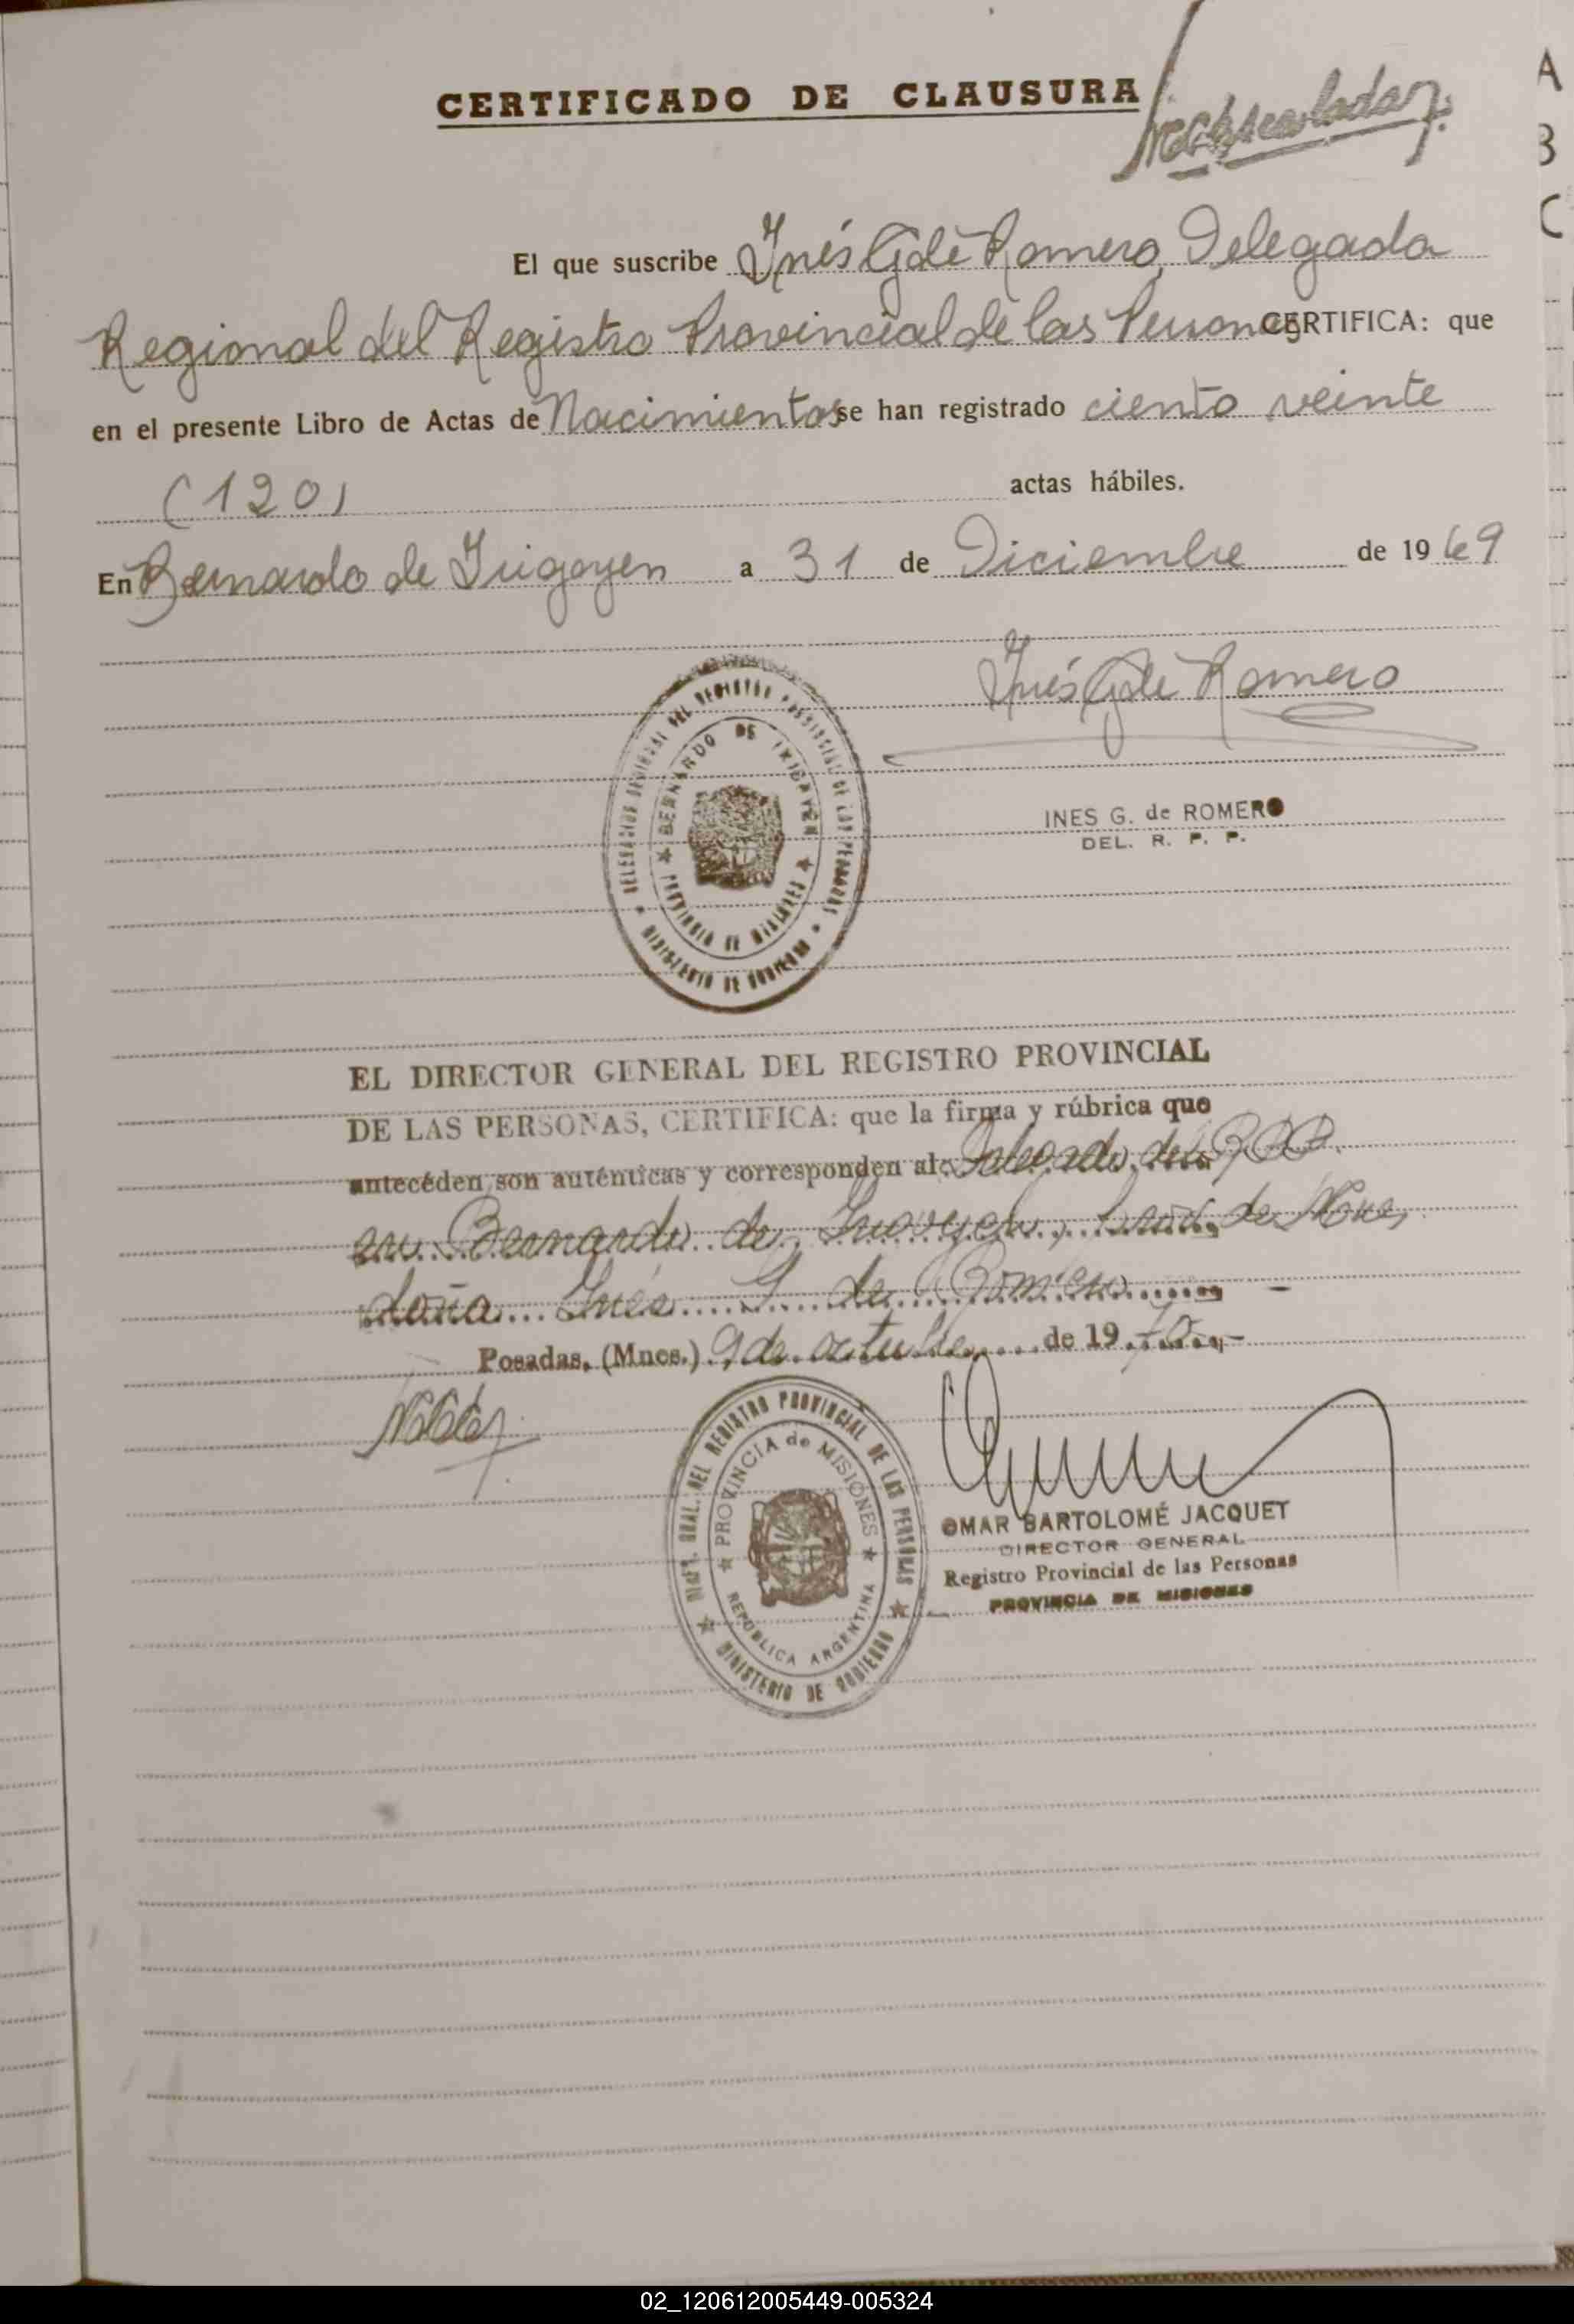 CERTIFICADO DE CLAUSURA
A
B
C
El que suscribe Inés G. de Romero, Delegada
Regional del Registro Provincial de las Personas CERTIFICA: que
en el presente Libro de Actas de Nacimientos se han registrado ciento veinte
(120) actas hábiles.
En Bernardo de Irigoyen a 31 de Diciembre de 1969
Inés G de Romero
DELEGACION REGIONAL DEL REGISTRO PROVINCIAL DE LAS PERSONAS
MINISTERIO DE GOBIERNO
BERNARDO DE IRIGOYEN
PROVINCIA DE MISIONES
INES G. de ROMERO
DEL. R. P. P.
EL DIRECTOR GENERAL DEL REGISTRO PROVINCIAL
DE LAS PERSONAS, CERTIFICA: que la firma y rúbrica que
antecéden, son auténticas y corresponden al Delegado del R.P.P.
en Bernardo de Irigoyen, de
doña Inés G. de Romero
Posadas, (Mnes.) 9 de octubre de 1970
DIREC. GRAL. DEL REGISTRO PROVINCIAL DE LAS PERSONAS
MINISTERIO DE GOBIERNO
PROVINCIA de MISIONES
REPUBLICA ARGENTINA
OMAR BARTOLOMÉ JACQUET
DIRECTOR GENERAL
Registro Provincial de las Personas
PROVINCIA DE MISIONES
02_120612005449-005324